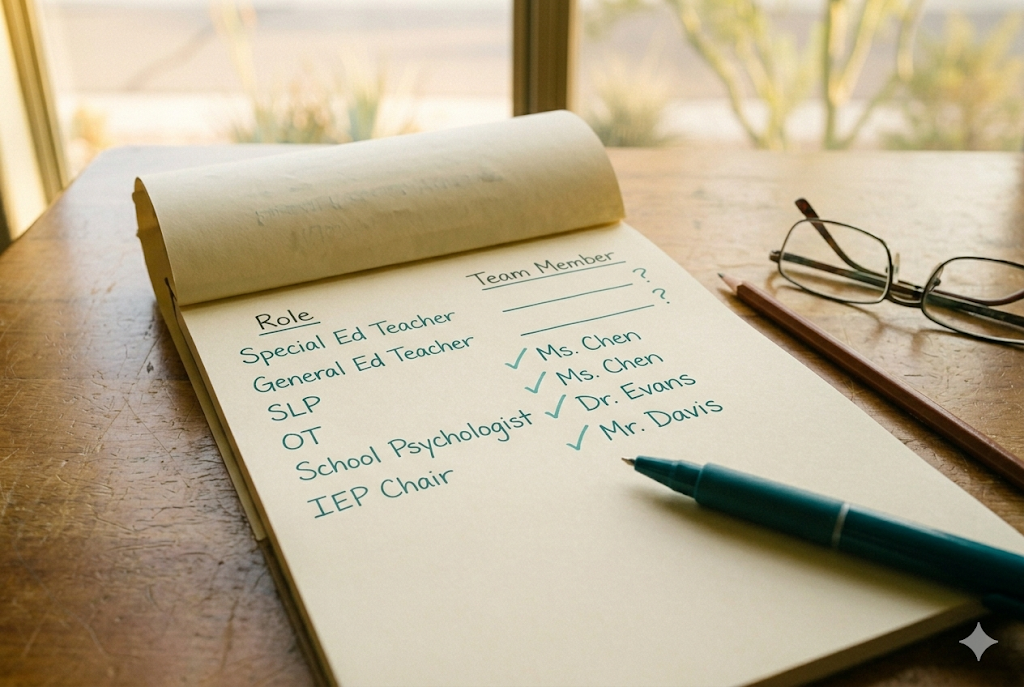 Role Team Member
Special Ed Teacher ______ ?
General Ed Teacher ______ ?
SLP ✓ Ms. Chen
OT ✓ Ms. Chen
School Psychologist ✓ Dr. Evans
IEP Chair ✓ Mr. Davis